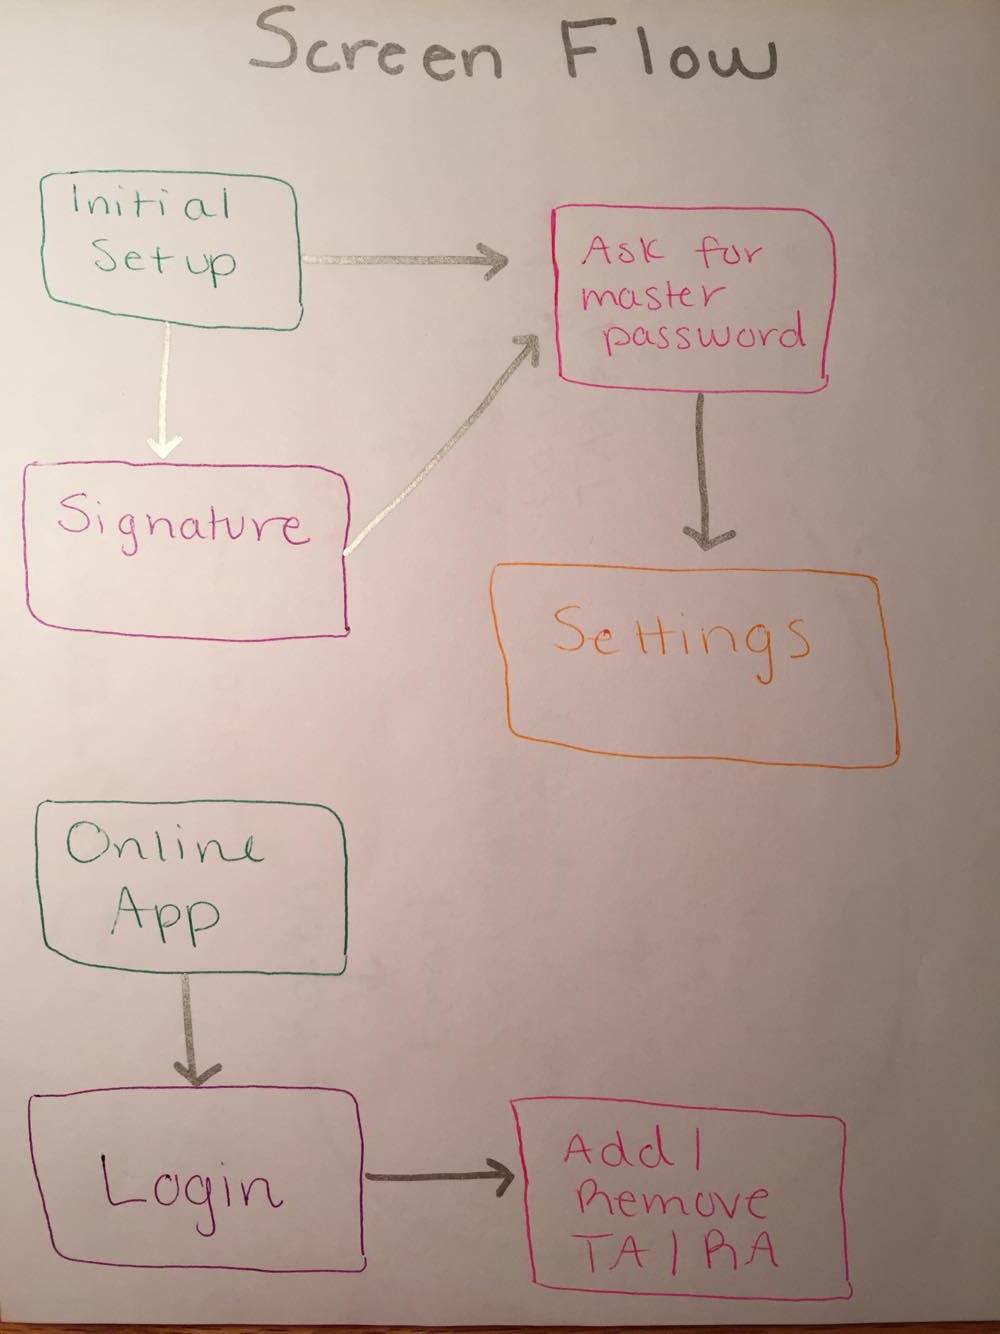 Screen Flow
Initial
Setup
Ask for
master
password
Signature
Settings
Online
App
Login
Add/
Remove
TA/RA